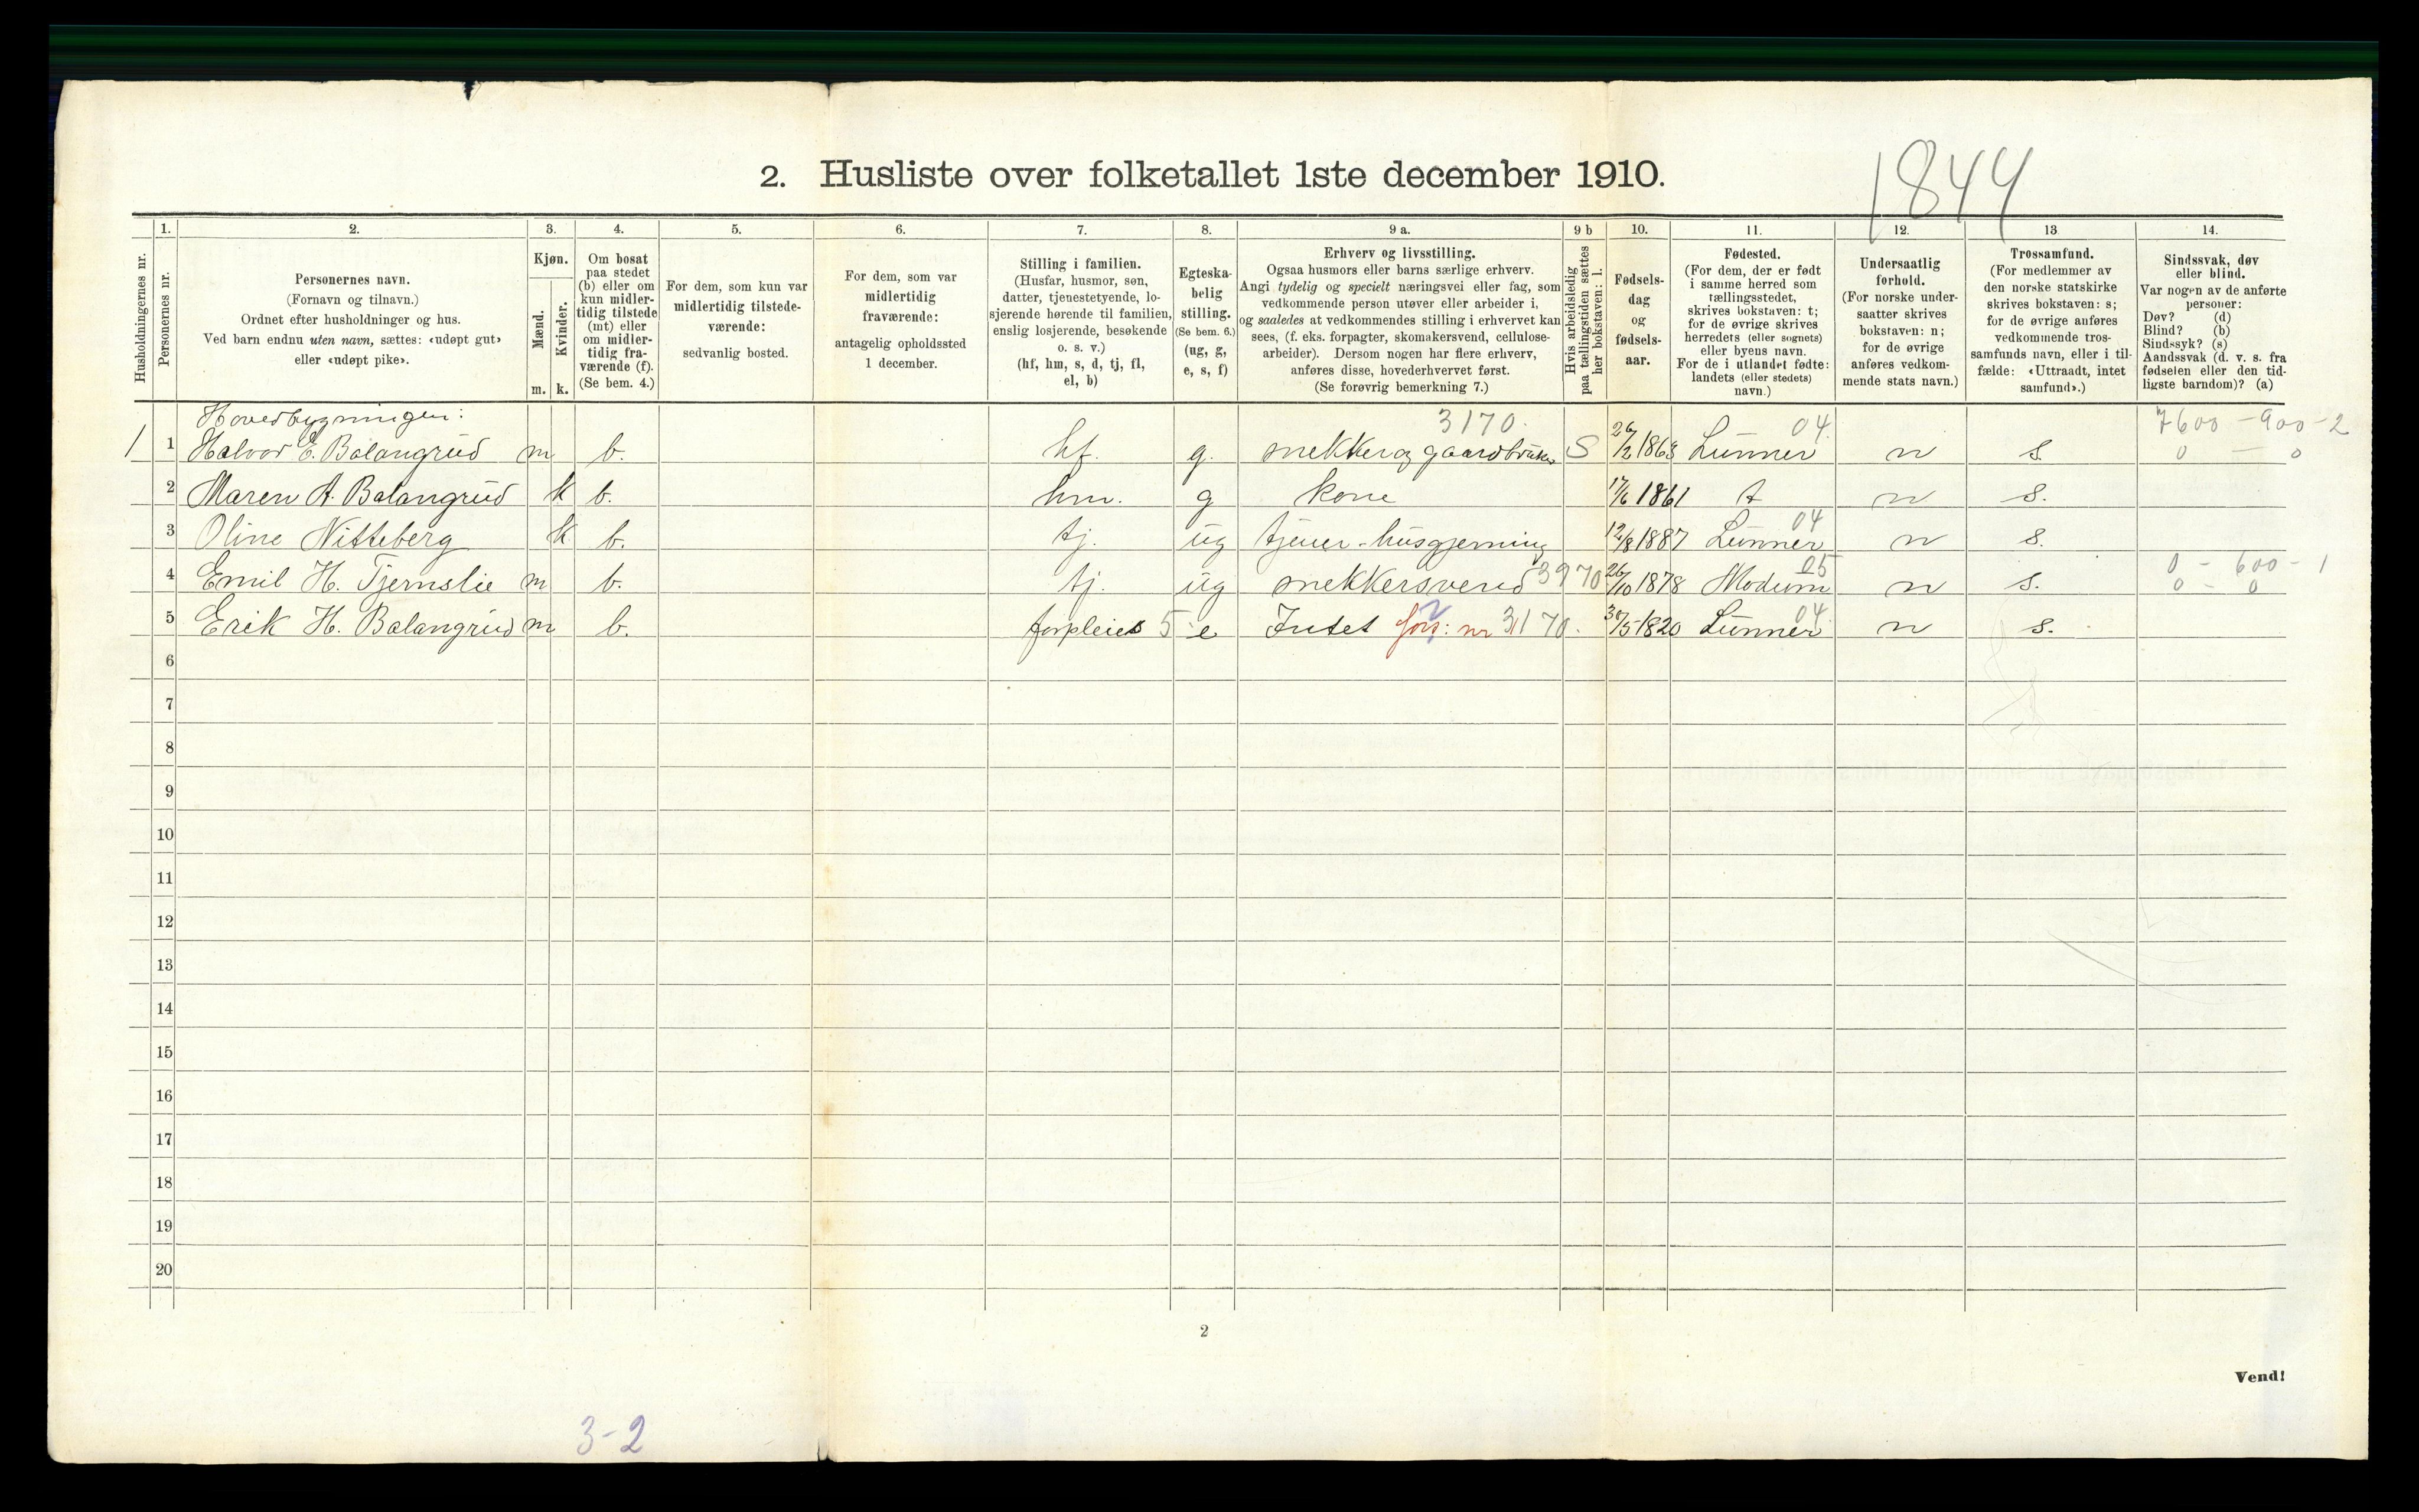 1844
2. Husliste over folketallet 1ste december 1910.
Husholdningernes nr.
1. Personernes nr.
2. Personernes navn.
(Fornavn og tilnavn.)
Ordnet efter husholdninger og hus.
Ved barn endnu uten navn, sættes: «udøpt gut»
eller «udøpt pike».
3. Kjøn.
Mænd. m.
Kvinder. k.
4. Om bosat
paa stedet
(b) eller om
kun midler-
tidig tilstede
(mt) eller
om midler-
tidig fra-
værende (f).
(Se bem. 4.)
5. For dem, som kun var
midlertidig tilstede-
værende:
sedvanlig bosted.
6. For dem, som var
midlertidig
fraværende:
antagelig opholdssted
1 december.
7. Stilling i familien.
(Husfar, husmor, søn,
datter, tjenestetyende, lo-
sjerende hørende til familien,
enslig losjerende, besøkende
o. s. v.)
(hf, hm, s, d, tj, fl,
el, b)
8. Egteska-
belig
stilling.
(Se bem. 6.)
(ug, g,
e, s, f)
9 a. Erhverv og livsstilling.
Ogsaa husmors eller barns særlige erhverv.
Angi tydelig og specielt næringsvei eller fag, som
vedkommende person utøver eller arbeider i,
og saaledes at vedkommendes stilling i erhvervet kan
sees, (f. eks. forpagter, skomakersvend, cellulose-
arbeider). Dersom nogen har flere erhverv,
anføres disse, hovederhvervet først.
(Se forøvrig bemerkning 7.)
9 b Hvis arbeidsledig
paa tællingstiden sættes
her bokstaven: l.
10. Fødsels-
dag
og
fødsels-
aar.
11. Fødested.
(For dem, der er født
i samme herred som
tællingsstedet,
skrives bokstaven: t;
for de øvrige skrives
herredets (eller sognets)
eller byens navn.
For de i utlandet fødte:
landets (eller stedets)
navn.)
12. Undersaatlig
forhold.
(For norske under-
saatter skrives
bokstaven: n;
for de øvrige
anføres vedkom-
mende stats navn.)
13. Trossamfund.
(For medlemmer av
den norske statskirke
skrives bokstaven: s;
for de øvrige anføres
vedkommende tros-
samfunds navn, eller i til-
fælde: «Uttraadt, intet
samfund».)
14. Sindssvak, døv
eller blind.
Var nogen av de anførte
personer:
Døv? (d)
Blind? (b)
Sindssyk? (s)
Aandssvak (d. v. s. fra
fødselen eller den tid-
ligste barndom)? (a)
Hovedbygningen: 3170. 04. 7600 - 900 - 2
1 1 Halvor E. Balangrud m b. hf. g. snekker og gaardbruker S 26/2 1863 Lunner n s. 0 — 0
2 Maren A. Balangrud k b. hm. g kone 17/6 1861 t n s.
3 Oline Nitteberg k b. tj. ug tjener - husgjerning 12/8 1887 Lunner 04 n s.
4 Emil H. Tjernslie m b. tj. ug snekkersvend 3970 26/10 1878 Modum 05 n s. 0 - 600 - 1
0 - 0
5 Erik H. Balangrud m b. forpleies 5 e Intet fors: nr 3170. 30/5 1820 Lunner 04 n s.
6
7
8
9
10
11
12
13
14
15
16
17
18
19
20
2
Vend!
3-2